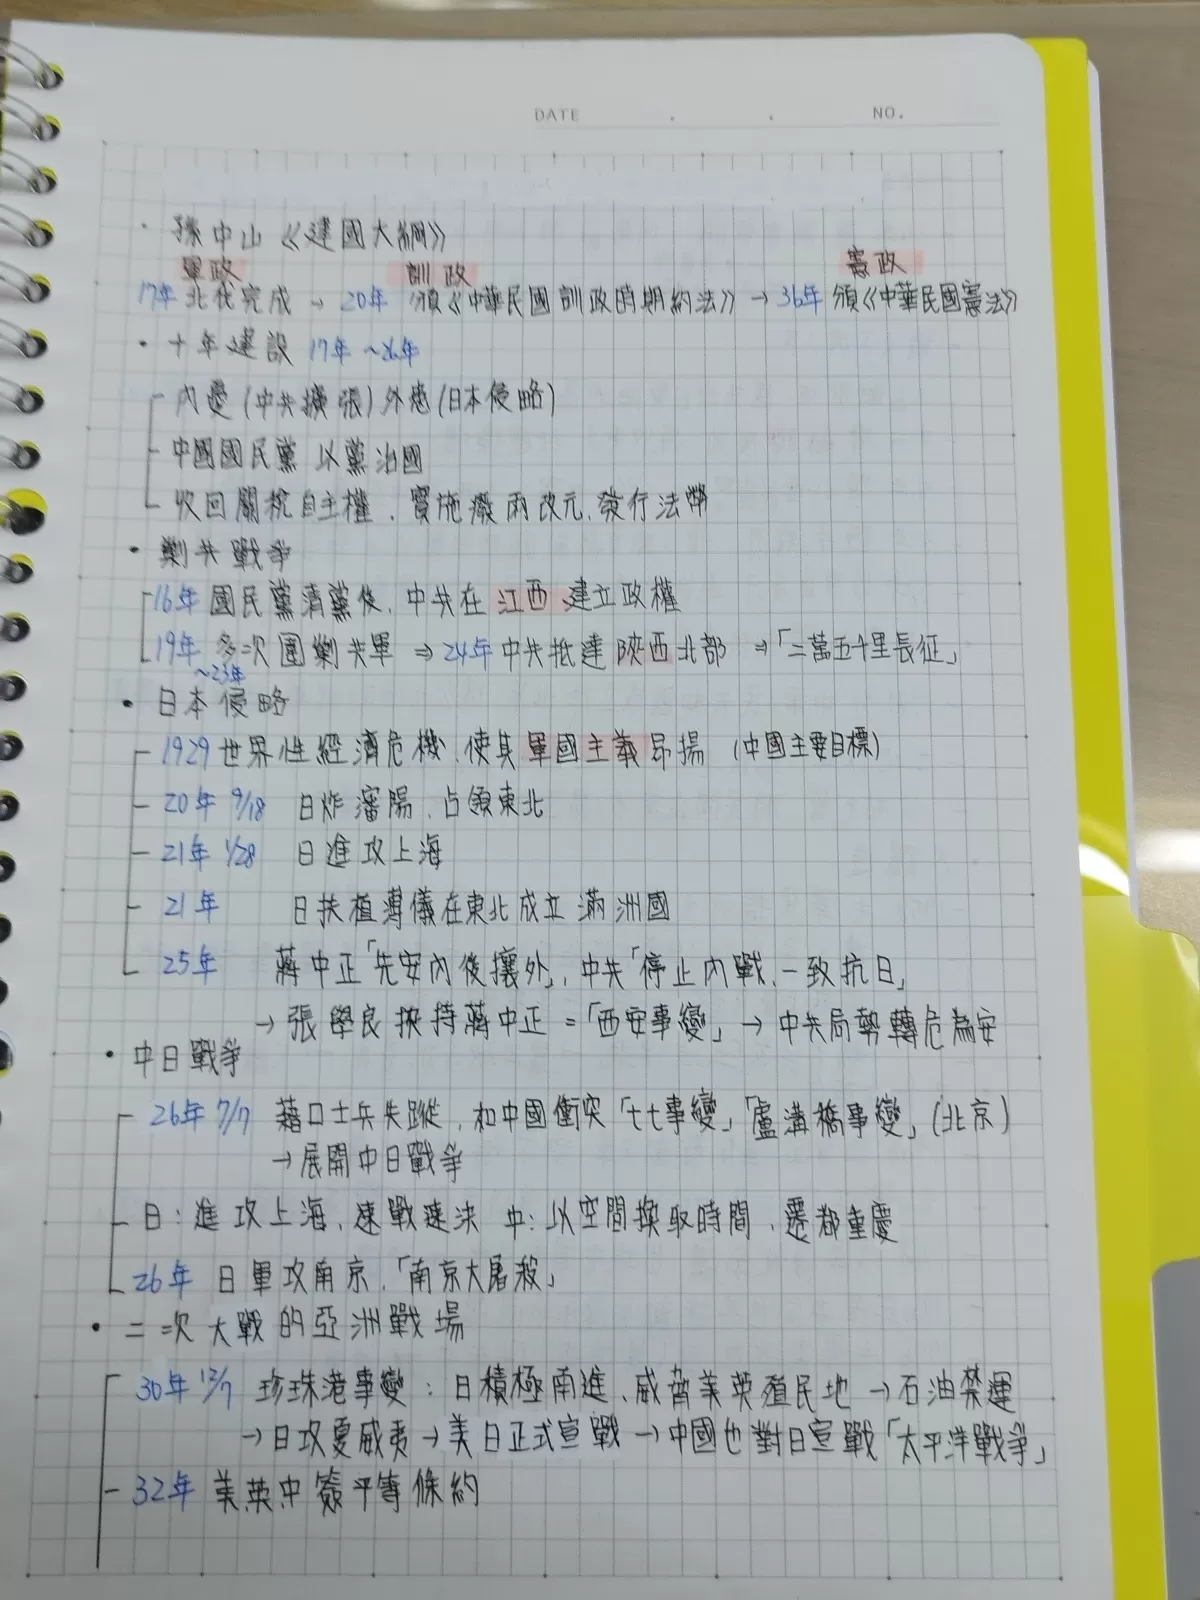 DATE . . NO.
・孫中山《建國大綱》
軍政 訓政 憲政
17年 北伐完成 → 20年 頒《中華民國訓政時期約法》→ 36年 頒《中華民國憲法》
・十年建設 17年~26年
內憂(中共擴張)外患(日本侵略)
中國國民黨 以黨治國
收回關稅自主權、實施廢兩改元、發行法幣
・剿共戰爭
16年 國民黨清黨後、中共在 江西 建立政權
19年 多次圍剿共軍 ⇒ 24年 中共抵達 陝西北部 ⇒「二萬五千里長征」
~23年
・日本侵略
1929 世界性經濟危機、使其 軍國主義 昂揚 (中國主要目標)
20年 9/18 日炸瀋陽、占領東北
21年 1/28 日進攻上海
21年 日扶植溥儀在東北成立滿洲國
25年 蔣中正「先安內後攘外」, 中共「停止內戰、一致抗日」
→ 張學良挾持蔣中正 =「西安事變」→ 中共局勢轉危為安
・中日戰爭
26年 7/7 藉口士兵失蹤, 和中國衝突「七七事變」「盧溝橋事變」(北京)
→ 展開中日戰爭
日: 進攻上海、速戰速決 中: 以空間換取時間、遷都重慶
26年 日軍攻南京、「南京大屠殺」
・二次大戰的亞洲戰場
30年 12/7 珍珠港事變: 日積極南進、威脅美英殖民地 → 石油禁運
→ 日攻夏威夷 → 美日正式宣戰 → 中國也對日宣戰「太平洋戰爭」
32年 美英中簽平等條約